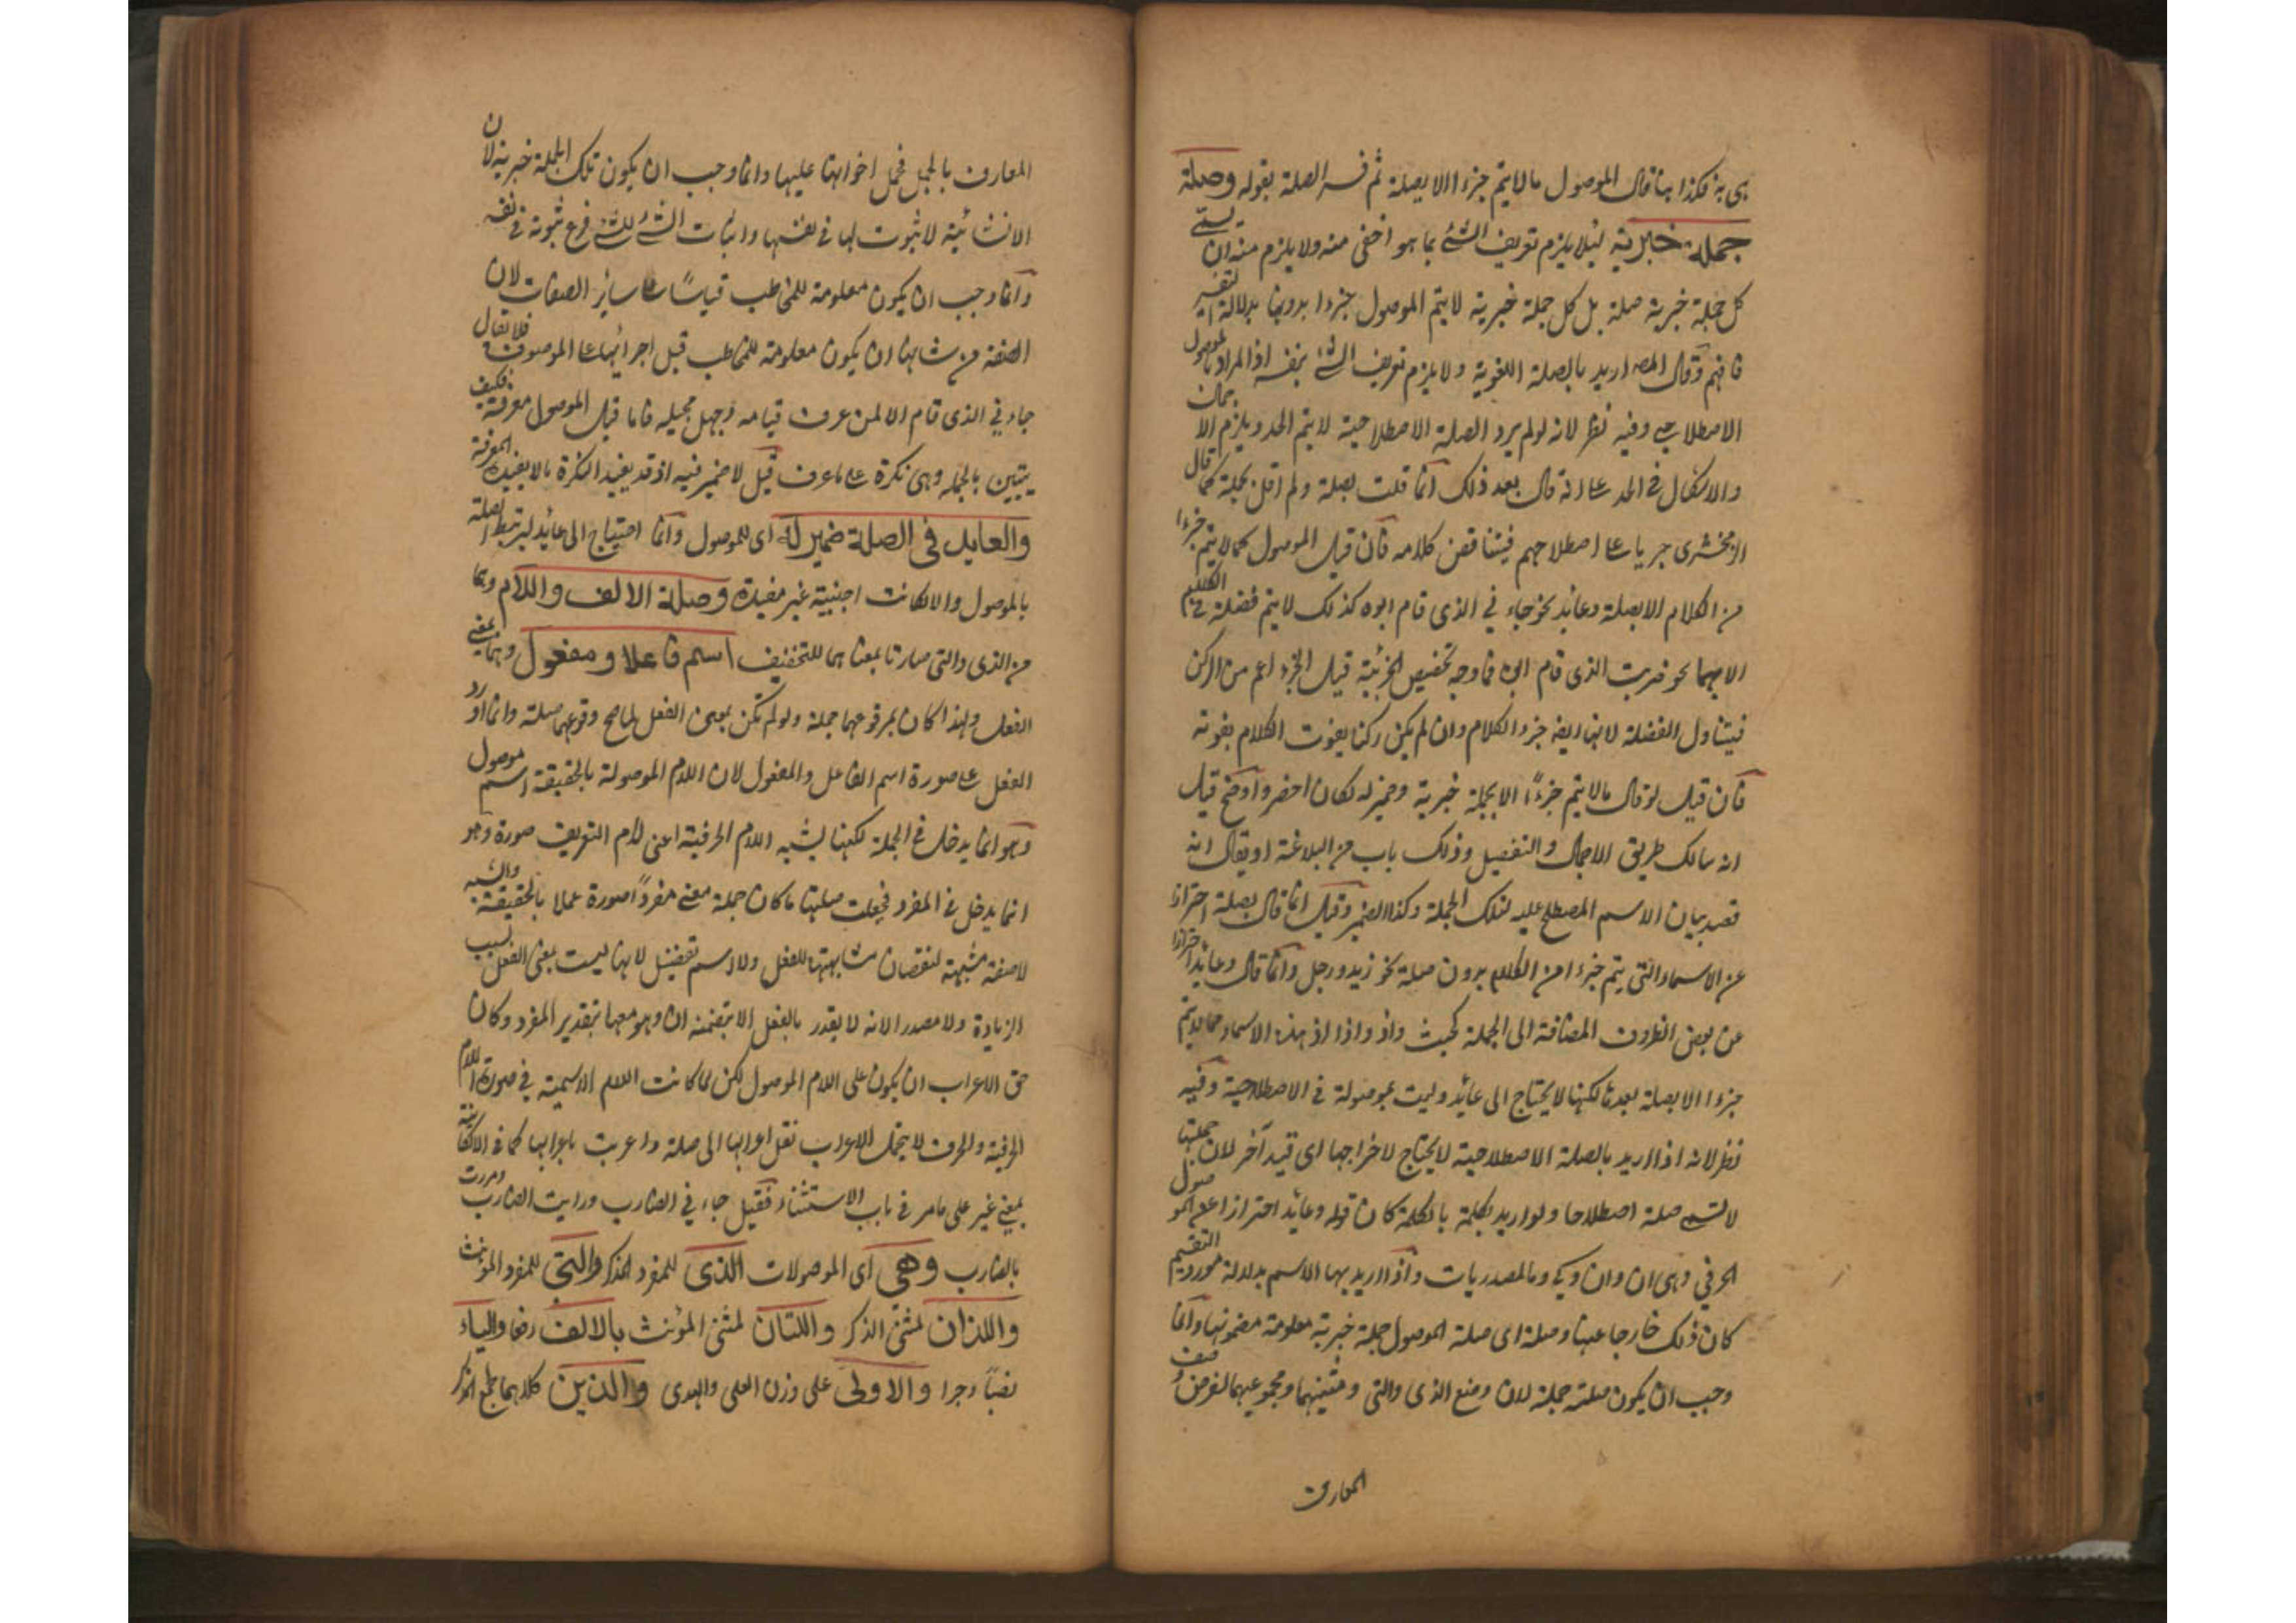 هي به فكذا هنا قال الموصول ما لا يتم جزءا الا بصلة ثم فسر الصلة بقوله وصلته
جملة خبرية لئلا يلزم تعريف الشئ بما هو اخفى منه ولا يلزم منه ان يسمى
كل جملة خبرية صلة بل كل جملة خبرية لا يتم الموصول جزءا بدونها بدلالة التفسير
فافهم وقال المصـ اريد بالصلة اللغوية ولا يلزم تعريف الشئ بنفسه اذ المراد بالموصول
الاصطلاحي وفيه نظر لانه لو لم يرد الصلة الاصطلاحية لا يتم الحد ويلزم الاجمال
والاشكال في الحد على انه قال بعد ذلك انما قلت بصلة ولم اقل بجملة كما قال
الزمخشرى جريا على اصطلاحهم فيتناقض كلامه فان قيل الموصول كما لا يتم جزءا
من الكلام الا بصلة وعائد نحو جاءني الذى قام ابوه كذلك لا يتم فضلة في الكلام
الا بهما نحو ضربت الذى قام ابوه فما وجه تخصيص الجزئية قيل الجزء اعم من الركن
فيتناول الفضلة لانها ايضا جزء الكلام وان لم يكن ركنا يفوت الكلام بفوته
فان قيل لو قال ما لا يتم جزءًا الا بجملة خبرية وضمير له لكان اخصر واوضح قيل
انه سالك طريق الاجمال والتفصيل وذلك باب من البلاغة او يقال انه
قصد بيان الاسم المصطلح عليه لتلك الجملة وكذا الضمير وقيل انما قال بصلة احترازا
عن الاسماء التى يتم جزءا من الكلام بدون صلة نحو زيد ورجل وانما قال وعائد احترازا
عن بعض الظروف المضافة الى الجملة كحيث واذ واذا اذ هذه الاسماء مما لا يتم
جزءا الا بصلة بعدها لكنها لا يحتاج الى عائد وليست بموصولة في الاصطلاحية وفيه
نظر لانه اذا اريد بالصلة الاصطلاحية لا يحتاج لاخراجها اى قيد آخر لان جملتها
لا تسمى صلة اصطلاحا ولو اريد بكلمة ما الكلمة كان قوله وعائد احترازا عن الموصول
الحرفي وهى ان وان وكى وما المصدريات واذا اريد بها الاسم بدلالة مورد التقسيم
كان ذلك خارجا عنها وصلته اى صلة الموصول جملة خبرية معلومة مضمونها وانما
وجب ان يكون صلته جملة لان وضع الذى والتى ومثنيهما ومجموعهما لغرض وصف
المعارف
المعارف بالجمل فحمل اخواتها عليها وانما وجب ان يكون تلك الجملة خبرية لان
الانشائية لا ثبوت لها في نفسها واثبات الشئ للشئ فرع ثبوته في نفسه
وانما وجب ان يكون معلومة للمخاطب قياسًا على سائر الصفات لان
الصفة من شانها ان يكون معلومة للمخاطب قبل اجرائها على الموصوف فلا يقال
جاءني الذى قام الا لمن عرف قيامه وجهل مجيئه فاما قيل الموصول معرفة فكيف
يتبين بالجملة وهى نكرة على ما عرف قيل لا ضير فيه اذ قد يفيد النكرة ما لا يفيده المعرفة
والعايد في الصلة ضمير له اى للموصول وانما احتيج الى عائد ليرتبط الصلة
بالموصول والا لكانت اجنبية غير مفيدة وصلة الالف واللام وهما
من الذى والتى صارتا بمعناهما للتخفيف اسم فاعل او مفعول وهما بمعنى
الفعل ولهذا كان بمرفوعهما جملة ولو لم تكن بمعنى الفعل لما صح وقوعهما صلة وانما اورد
الفعل على صورة اسم الفاعل والمفعول لان اللام الموصولة بالحقيقة اسم موصول
وهو انما يدخل في الجملة لكنها يشبه اللام الحرفية اعنى لام التعريف صورة وهو
انما يدخل في المفرد فجعلت صلتها ما كان جملة معنى مفردًا صورة عملا بالحقيقة والشبه
لا صفة مشبهة لنقصان مشابهتها للفعل ولا اسم تفضيل لانها ليست بمعنى الفعل بسبب
الزيادة ولا مصدر الانه لا يقدر بالفعل الا بتضمنه ان وهو معها بتقدير المفرد وكان
حق الاعراب ان يكون على اللام الموصول لكن لما كانت اللام الاسمية في صورة اللام
الحرفية والحرف لا يتحمل الاعراب نقل اعرابها الى صلة واعربت باعرابها كما في الا الكائنة
بمعنى غير على ما مر في باب الاستثناء فقيل جاءني الضارب ورايت الضارب ومررت
بالضارب وهى اى الموصولات الذى للمفرد المذكر والتى للمفرد المؤنث
واللذان لمثنى المذكر واللتان لمثنى المؤنث بالالف رفعا والياء
نصبًا وجرا والاولى على وزن العلى والهدى والذين كلاهما لجمع المذكر